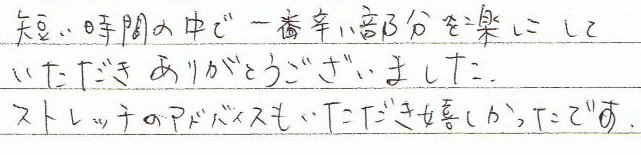 短い時間の中で一番辛い部分を楽にして
いただきありがとうございました.
ストレッチのアドバイスもいただき嬉しかったです.